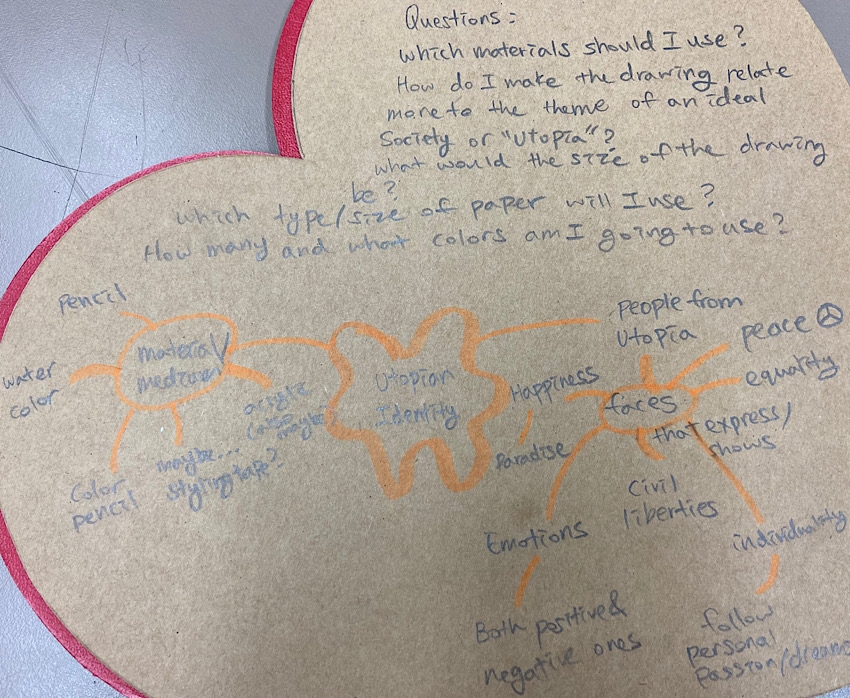 Questions:
which materials should I use?
How do I make the drawing relate
more to the theme of an ideal
Society or "Utopia"?
what would the size of the drawing
be?
which type/size of paper will I use?
How many and what colors am I going to use?
Pencil
material/
medium
water
color
Color
pencil
maybe...
styling tape?
maybe
Utopian
Identity
People from
Utopia
peace
equality
Happiness
faces
that express/
shows
Paradise
Civil
liberties
Emotions
individuality
Both positive &
negative ones
follow
personal
Passion/dreams